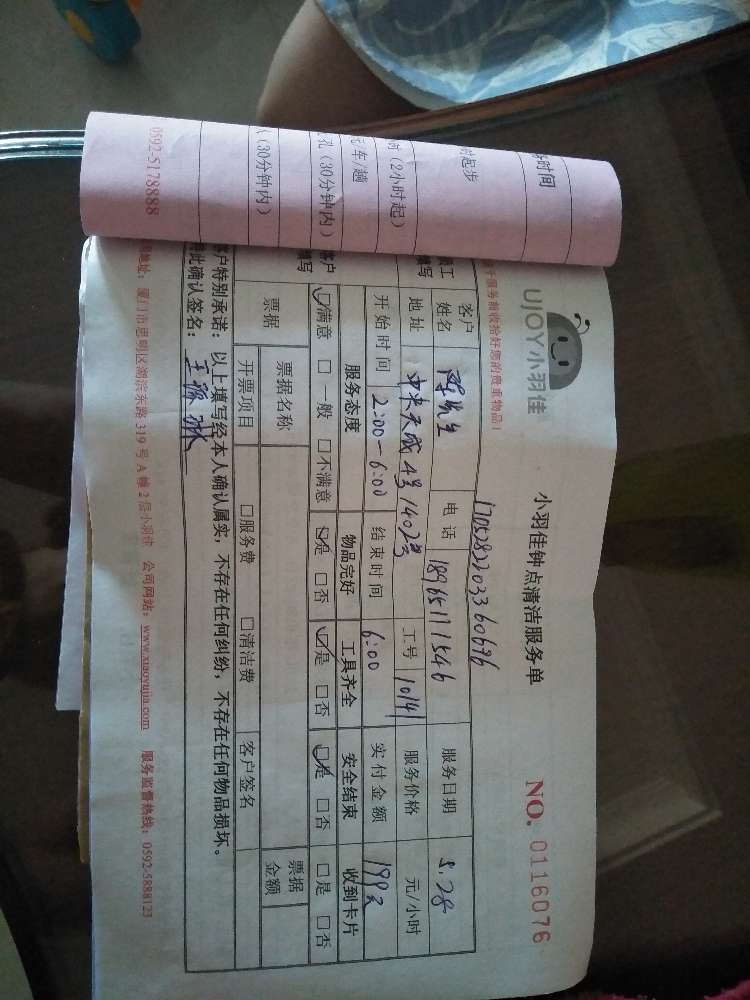 务时间
时起步
时（2小时起）
元/车/趟
孔（30分钟内）
（30分钟内）
0592-5178888
UJOY小羽佳
小羽佳钟点清洁服务单
NO. 0116076
服务前收拾好您的贵重物品！
1705282203360696
员工
填写
客户
姓名
电话
18965171546
服务日期
5.28
地址
中央天成4号1402号
工号
10141
服务价格
元/小时
开始时间
2:00-6:00
结束时间
6:00
实付金额
199元
客户
填写
服务态度
物品完好
工具齐全
安全结束
收到卡片
☑满意 □一般 □不满意
☑是 □否
☑是 □否
☑是 □否
□是 □否
票据
票据名称
票据
金额
开票项目
□服务费 □清洁费
客户签名
客户特别承诺：以上填写经本人确认属实，不存在任何纠纷，不存在任何物品损坏。
此确认签名：
地址：厦门市思明区湖滨东路319号A幢2层小羽佳 公司网站：www.xiaoyujia.com 服务监督热线：0592-5888123